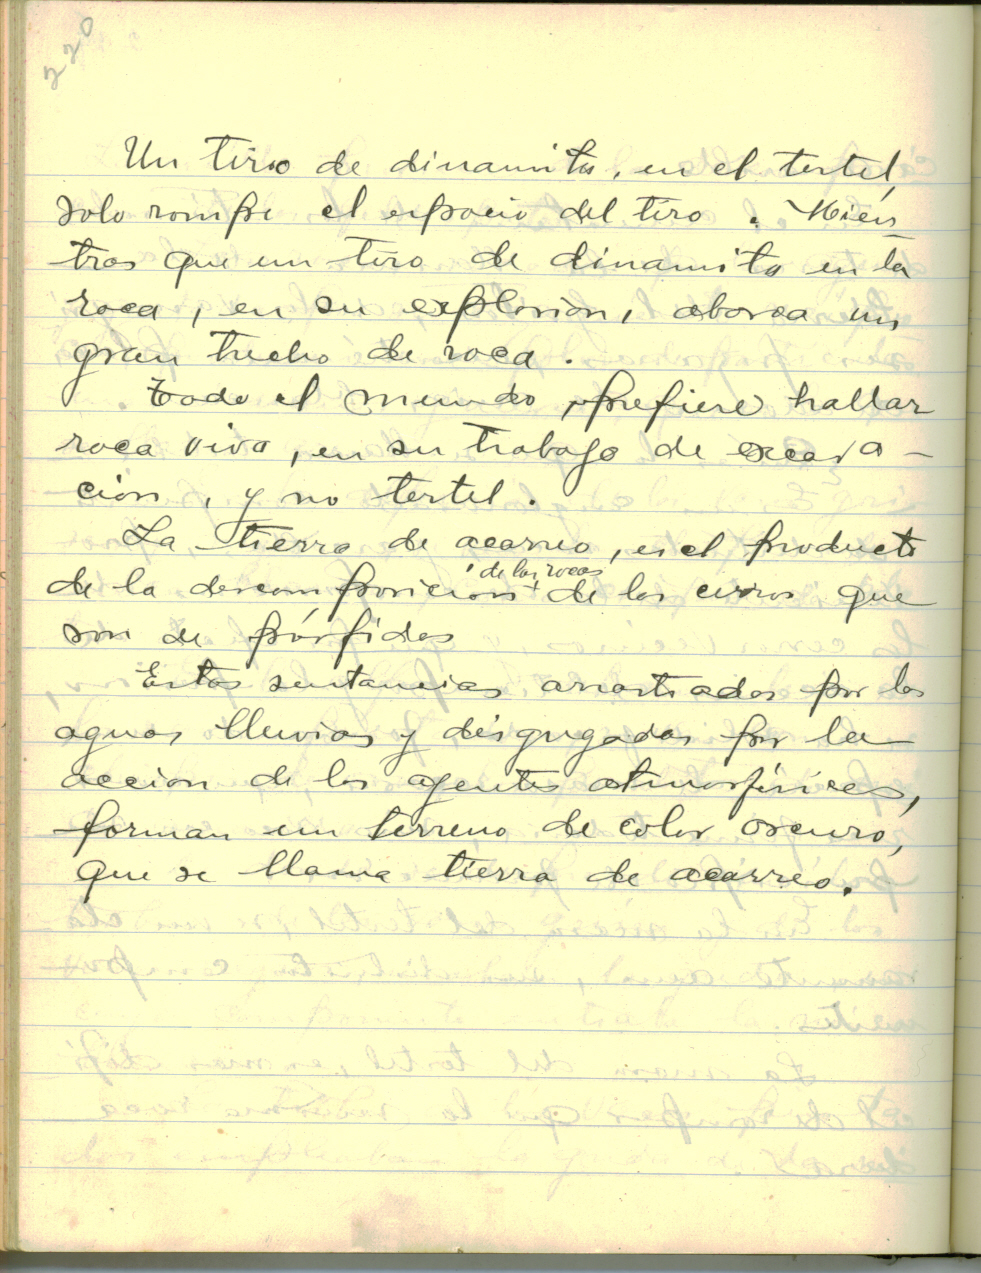 220
Un tiro de dinamita, en el tertel,
solo rompe el espacio del tiro. Mien
tras que un tiro de dinamita en la
roca, en su explosion, abarca un
gran trecho de roca.
Todo el mundo, prefiere hallar
roca viva, en su trabajo de excava-
cion, y no tertel.
La tierra de acarreo, es el producto
de las rocas
de la descomposicion de los cerros que
son de pórfidos
Estas sustancias arrastradas por las
aguas lluvias y desgregadas por la
accion de los agentes atmosféricos,
forman un terreno de color oscuro,
que se llama tierra de acarreo.